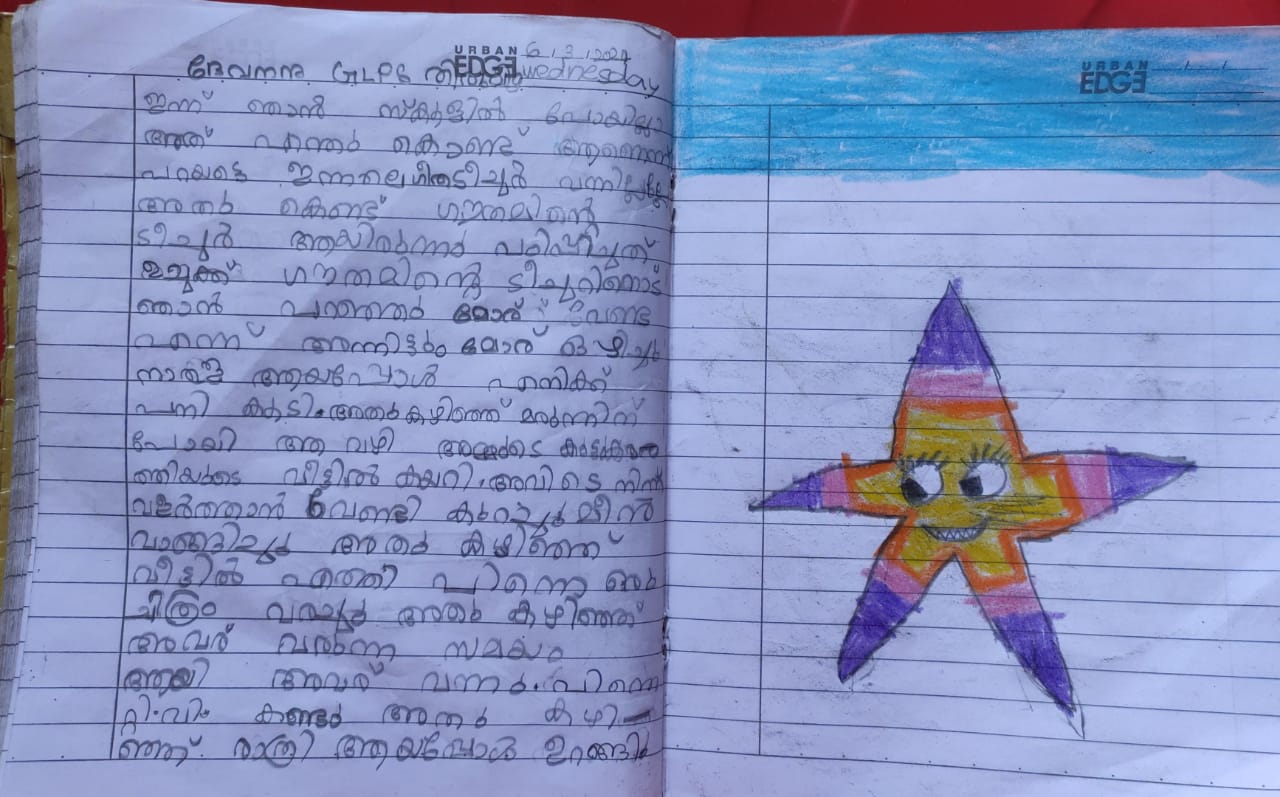 URBAN EDGE 6/3/2024
ദേവനന്ദ GLPS Wednesday
ഇന്ന് ഞാൻ സ്കൂളിൽ പോയില്ല
അത് എന്തു കൊണ്ട് ആണെന്ന്
പറയട്ടെ ഇന്നലെ ടീച്ചർ വന്നില്ല
അതു കെണ്ട് ഗൗതമിന്റെ
ടീച്ചർ ആയിരുന്നു പഠിപ്പിച്ചത്
ഉച്ചക്ക് ഗൗതമിന്റെ ടീച്ചറിനോട്
ഞാൻ പറഞ്ഞതു മോര് വേണ്ട
എന്ന് അന്നിട്ടും മോര് ഒഴിച്ചു
നാതള ആയപ്പോൾ എനിക്ക്
പനി കൂടി. അതു കഴിഞ്ഞ് മരുന്നിന്
പോയി ആ വഴി അമ്മുടെ കൂട്ടുകാരി
ത്തിയുടെ വീട്ടിൽ കയറി. അവിടെ നിന്ന്
വളർത്താൻ വേണ്ടി കുറച്ചു മീൻ
വാങ്ങിച്ചു അതു കഴിഞ്ഞ്
വീട്ടിൽ എത്തി പിന്നെ ഒരു
ചിത്രം വരച്ചു അതു കഴിഞ്ഞ്
അവര് വരുന്ന സമയം
ആയി അവര് വന്നു. പിന്നെ
റ്റി.വി. കണ്ടു അതു കഴി
ഞ്ഞ്. രാത്രി ആയപ്പോൾ ഉറങ്ങി
URBAN EDGE